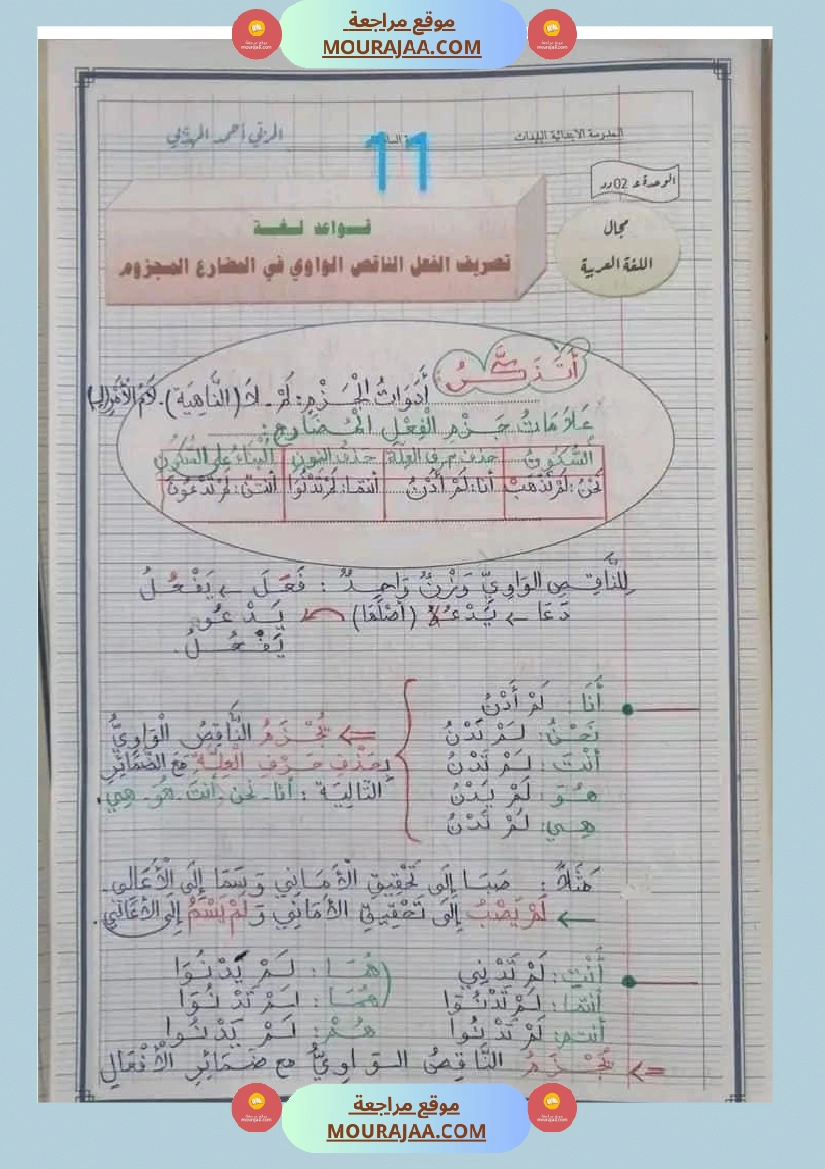 موقع مراجعة
MOURAJAA.COM
المدرسة الابتدائية
المربّي أحمد
11
الوحدة 02
مجال
اللغة العربية
قواعد لغة
تصريف الفعل الناقص الواوي في المضارع المجزوم
أَتَذَكَّرُ
أَدَوَاتُ الْجَزْمِ: لَمْ - لَا (النَّاهِيَة). لَامُ الْأَمْرِ (لِـ)
عَلَامَاتُ جَزْمِ الْفِعْلِ الْمُضَارِعِ:
السُّكُونُ حذف حرف العلّة حذف النون الْبِنَاءُ على السُّكُون
نَحْنُ: لَمْ نَذْهَبْ أنا: لَمْ أَدْنُ أنتما: لَمْ تَدْنُوَا أنتنّ: لَمْ تَدْعُونَ
لِلنَّاقِصِ الوَاوِيِّ وَزْنٌ وَاحِدٌ: فَعَلَ ← يَفْعُلُ
دَعَا ← يَدْعُو (أصلها) يَدْعُوُ
يَفْعُلُ.
أَنَا: لَمْ أَدْنُ
نَحْنُ: لَمْ نَدْنُ
أَنْتَ: لَمْ تَدْنُ
هُوَ: لَمْ يَدْنُ
هِيَ: لَمْ تَدْنُ
⇐ يُجْزَمُ النَّاقِصُ الْوَاوِيُّ
بِحَذْفِ حَرْفِ الْعِلَّةِ مَعَ الضَّمَائِرِ
التَّالِيَة: أنا - نحن - أنتَ - هُوَ - هِيَ.
مَثَلًا: صَبَا إِلَى تَحْقِيقِ الْأَمَانِي وَسَمَا إِلَى الْأَعَالِي.
← لَمْ يَصْبُ إِلَى تَحْقِيقِ الْأَمَانِي وَلَمْ يَسْمُ إِلَى الْأَعَالِي.
أَنْتِ: لَمْ تَدْنِي هُمَا: لَمْ يَدْنُوَا
أَنْتُمَا: لَمْ تَدْنُوَا هُمَا: لَمْ تَدْنُوَا
أَنْتُم: لَمْ تَدْنُوا هُمْ: لَمْ يَدْنُوا
⇐ يُجْزَمُ النَّاقِصُ الوَاوِيُّ مع ضَمَائِرِ الْأَفْعَالِ
موقع مراجعة
MOURAJAA.COM